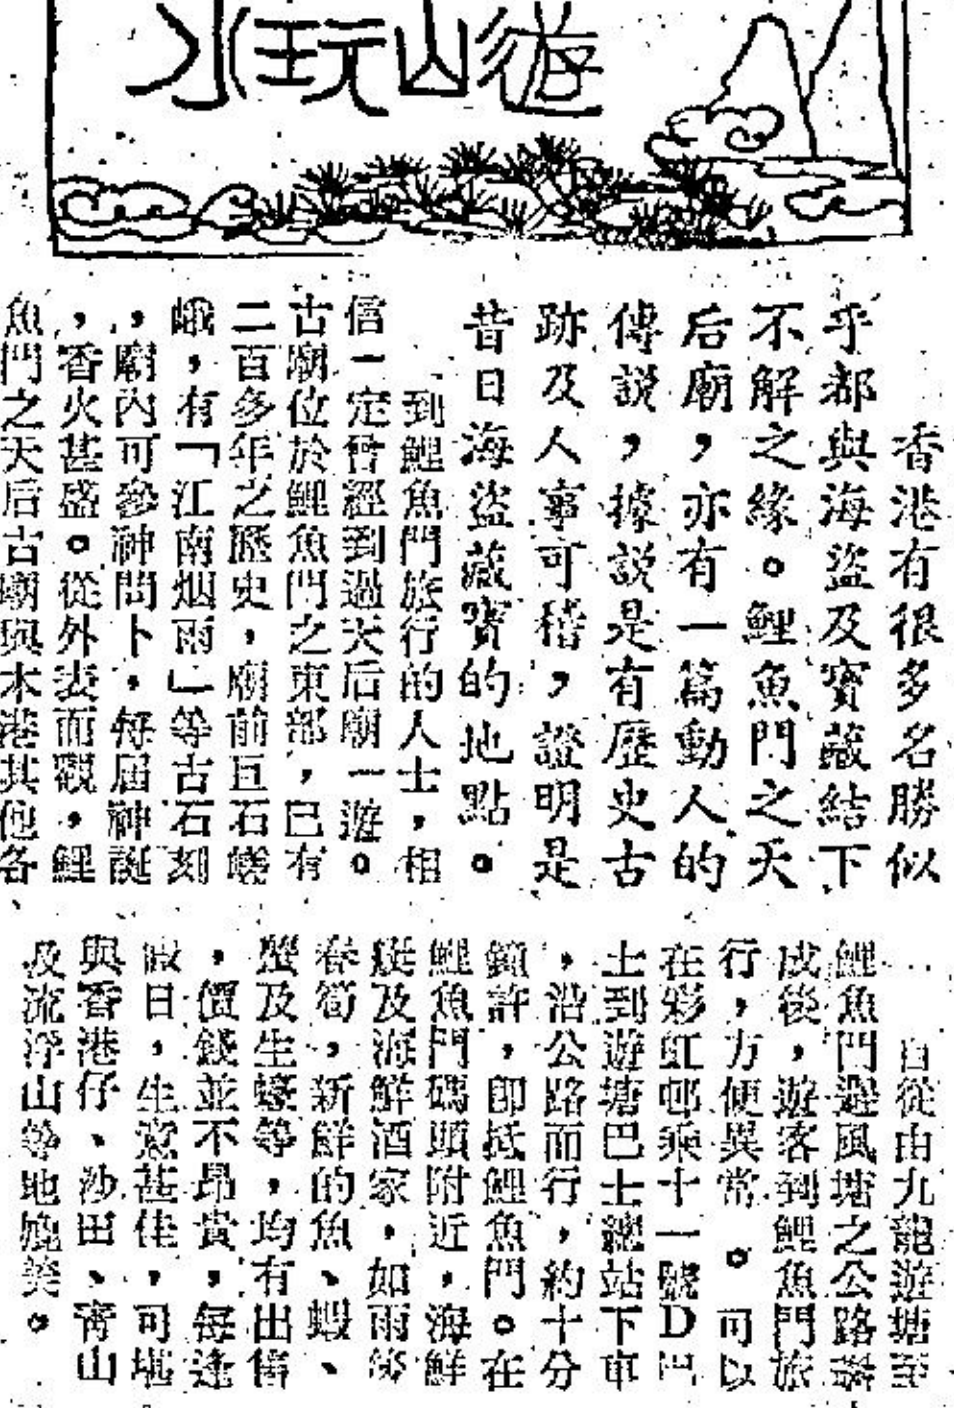 遊山玩水
香港有很多名勝似
乎都與海盜及寶藏結下
不解之緣。鯉魚門之天
后廟，亦有一篇動人的
傳説，據説是有歷史古
跡及人事可稽，證明是
昔日海盜藏寶的地點。
到鯉魚門旅行的人士，相
信一定曾經到過天后廟一遊。
古廟位於鯉魚門之東部，已有
二百多年之歷史，廟前巨石嵯
峨，有「江南烟雨」等古石刻
，廟內可參神問卜，每屆神誕
，香火甚盛。從外表而觀，鯉
魚門之天后古廟與本港其他各
自從由九龍遊塘至
鯉魚門避風塘之公路築
成後，遊客到鯉魚門旅
行，方便異常。可以
在彩虹邨乘十一號D巴
士到遊塘巴士總站下車
，沿公路而行，約十分
鐘許，卽抵鯉魚門。在
鯉魚門碼頭附近，海鮮
艇及海鮮酒家，如雨後
春筍，新鮮的魚、蝦、
蟹及生蠔等，均有出售
，價錢並不昂貴，每逢
假日，生意甚佳，可堪
與香港仔、沙田、青山
及流浮山等地媲美。